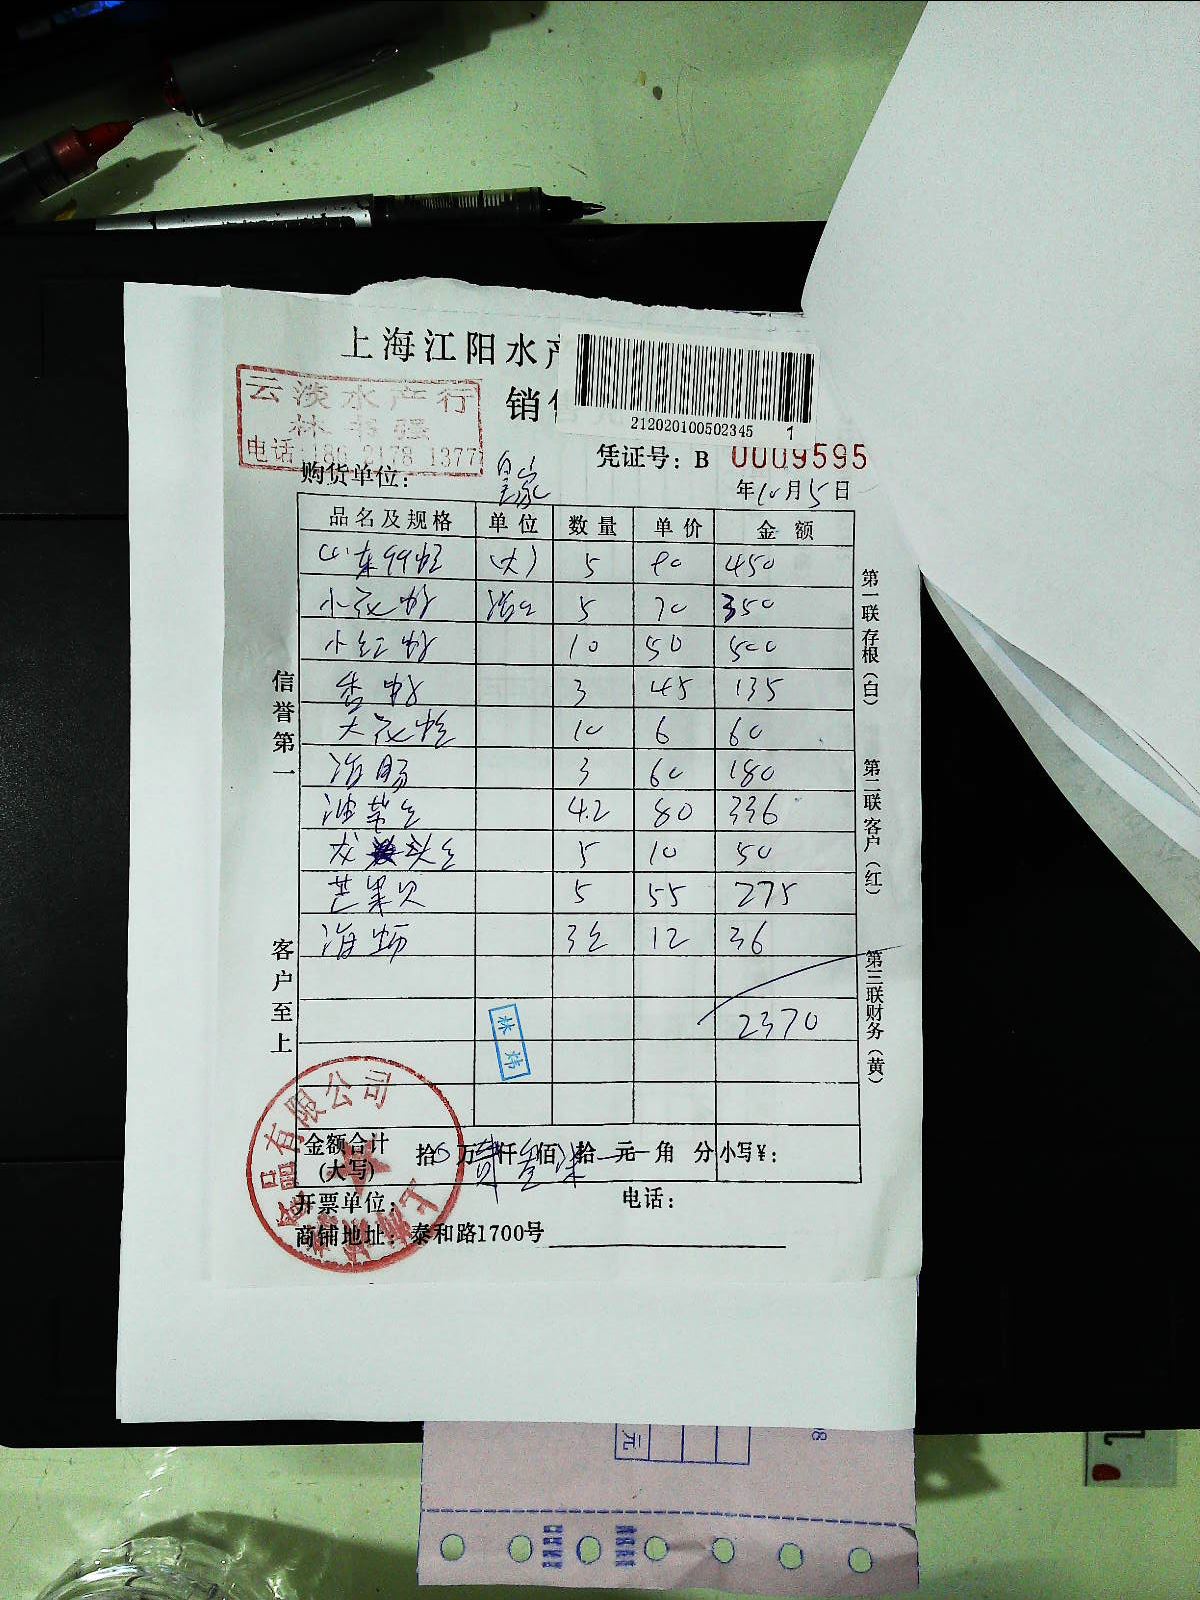 上海江阳水产
销售
212020100502345 1
云淡水产行
林书强
电话:186 2178 1377
凭证号: B 0009595
购货单位: 皇家
年10月5日
品名及规格 单位 数量 单价 金额
山东 (大) 5 90 450
小花蛤 5 70 350
小红蛤 10 50 500
香蛤 3 45 135
大花蛤 10 6 60
海肠 3 60 180
4.2 80 336
龙头 5 10 50
芒果贝 5 55 275
海蛎 3 12 36
2370
林炜
金额合计(大写) 拾 万 贰 仟 叁 佰 柒 拾 元 角 分 小写¥:
开票单位: 电话:
商铺地址: 泰和路1700号
信誉第一
客户至上
第一联存根(白)
第二联客户(红)
第三联财务(黄)
品有限公司
上海
元